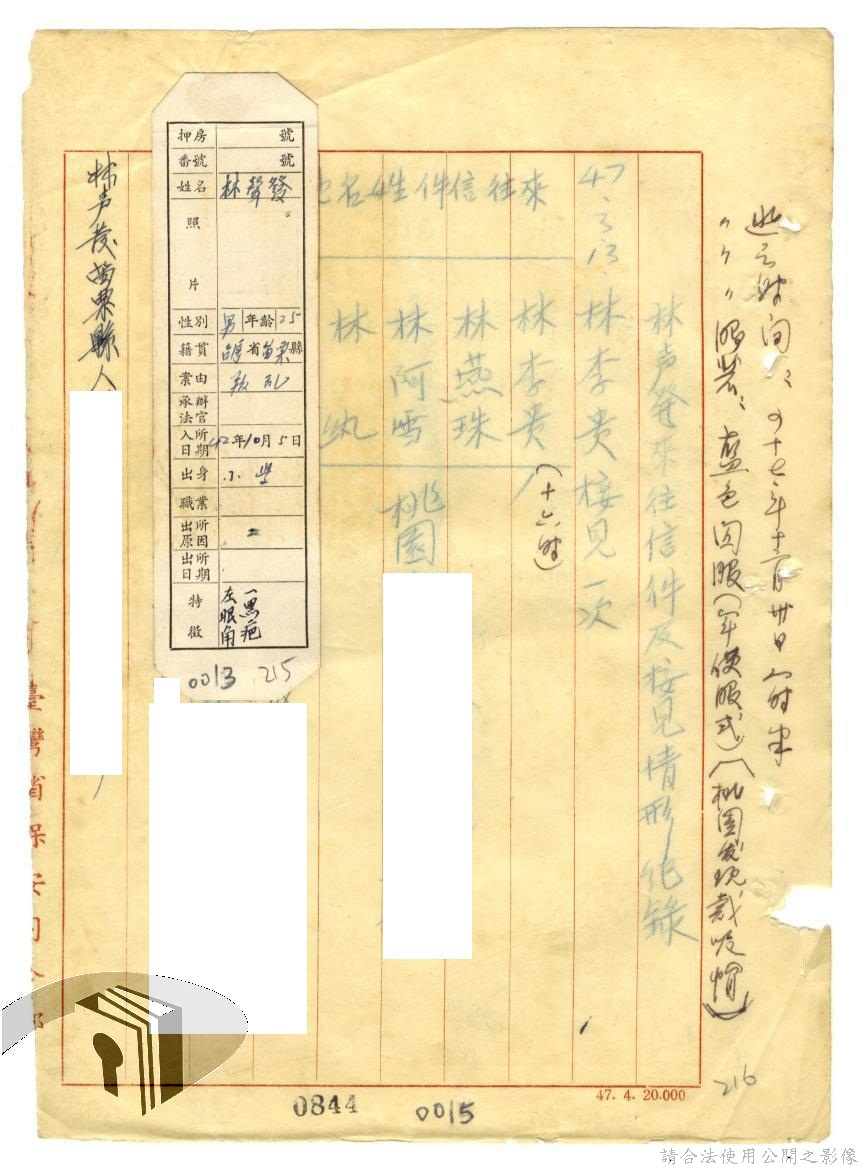 逃亡時間：四十七年十二月卅日八時半
〃〃〃服裝：藍色囚服（軍便服式）（桃園發現戴呢帽）
林声發來往信件及接見情形紀錄
47.3.13.林李貴接見一次
來往信件姓名
林李貴（十六時）
林燕珠
林阿雪 桃園
林
押房 號
番號 號
姓名 林聲發
照片
性別 男 年齡 25
籍貫 台灣省苗栗縣
案由 叛亂
承辦法官
入所日期 42年10月5日
出身 小學
職業
出所原因
出所日期
特徵 左眼角一黑疤
0013 215
林声發苗栗縣人
臺灣省保安司令部
0844 0015
47. 4. 20.000
216
請合法使用公開之影像